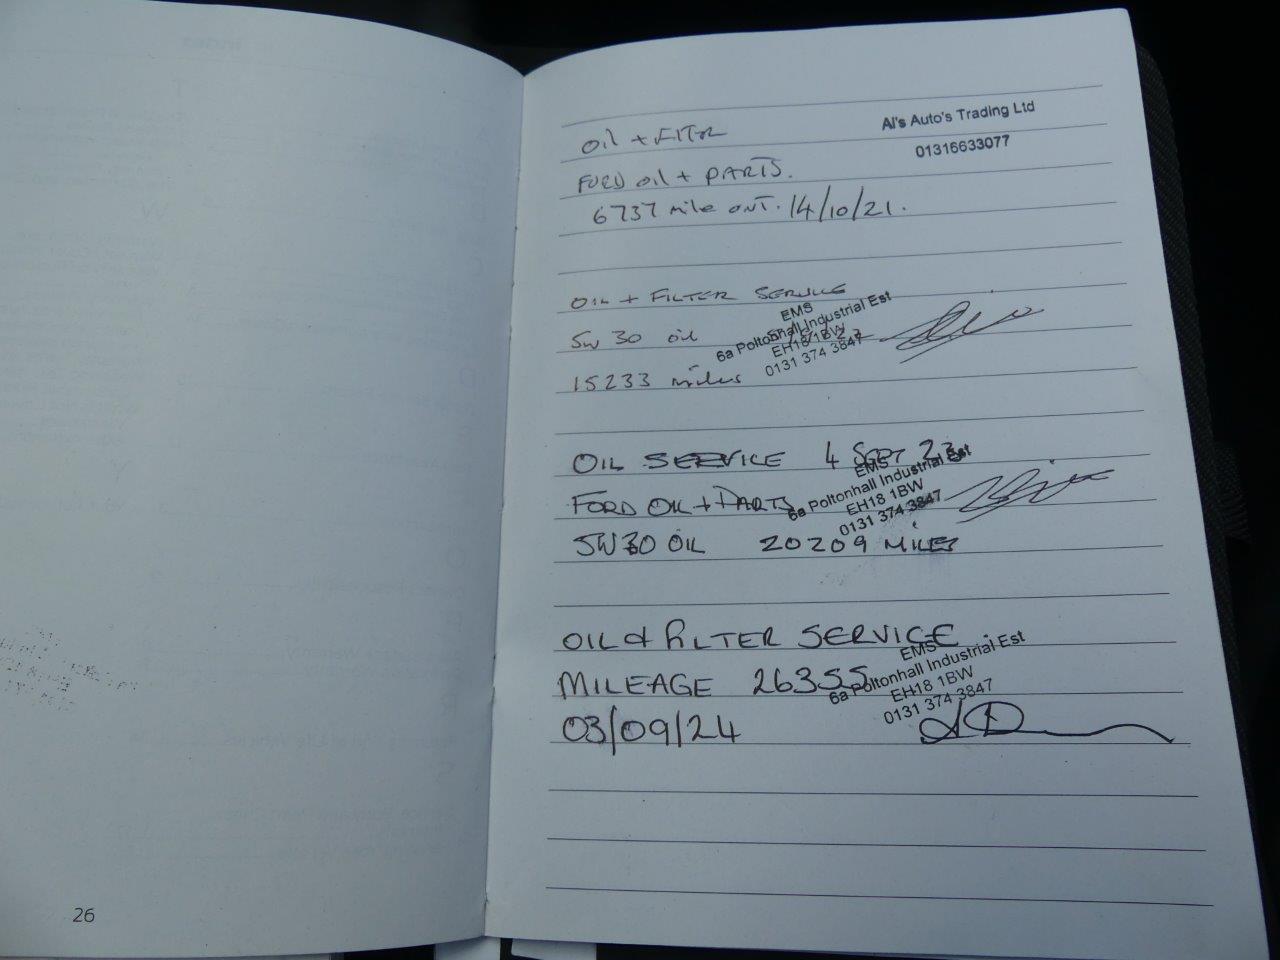 Oil + FITR
Al's Auto's Trading Ltd
01316633077
FORD Oil + PARTS.
6737 mile ONT. 14/10/21.
OIL + FILTER SERVICE
5W 30 oil
EMS
6a Poltonhall Industrial Est
EH18 1BW
0131 374 3847
15233 miles
OIL SERVICE 4 SEPT 23
FORD OIL + PARTS
EMS
6a Poltonhall Industrial Est
EH18 1BW
0131 374 3847
5W30 OIL 20209 MILES
OIL & FILTER SERVICE
MILEAGE 26355
EMS
6a Poltonhall Industrial Est
EH18 1BW
0131 374 3847
03/09/24
26